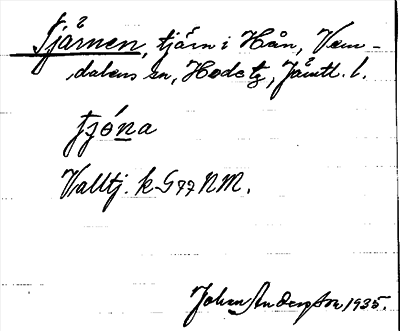 Tjärnen, tjärn i Hån, Vem-
dalens sn, Hede tg, Jämtl. l.
tjǿna
Valltj. k S 77 NM.
Johan Anderson 1935.